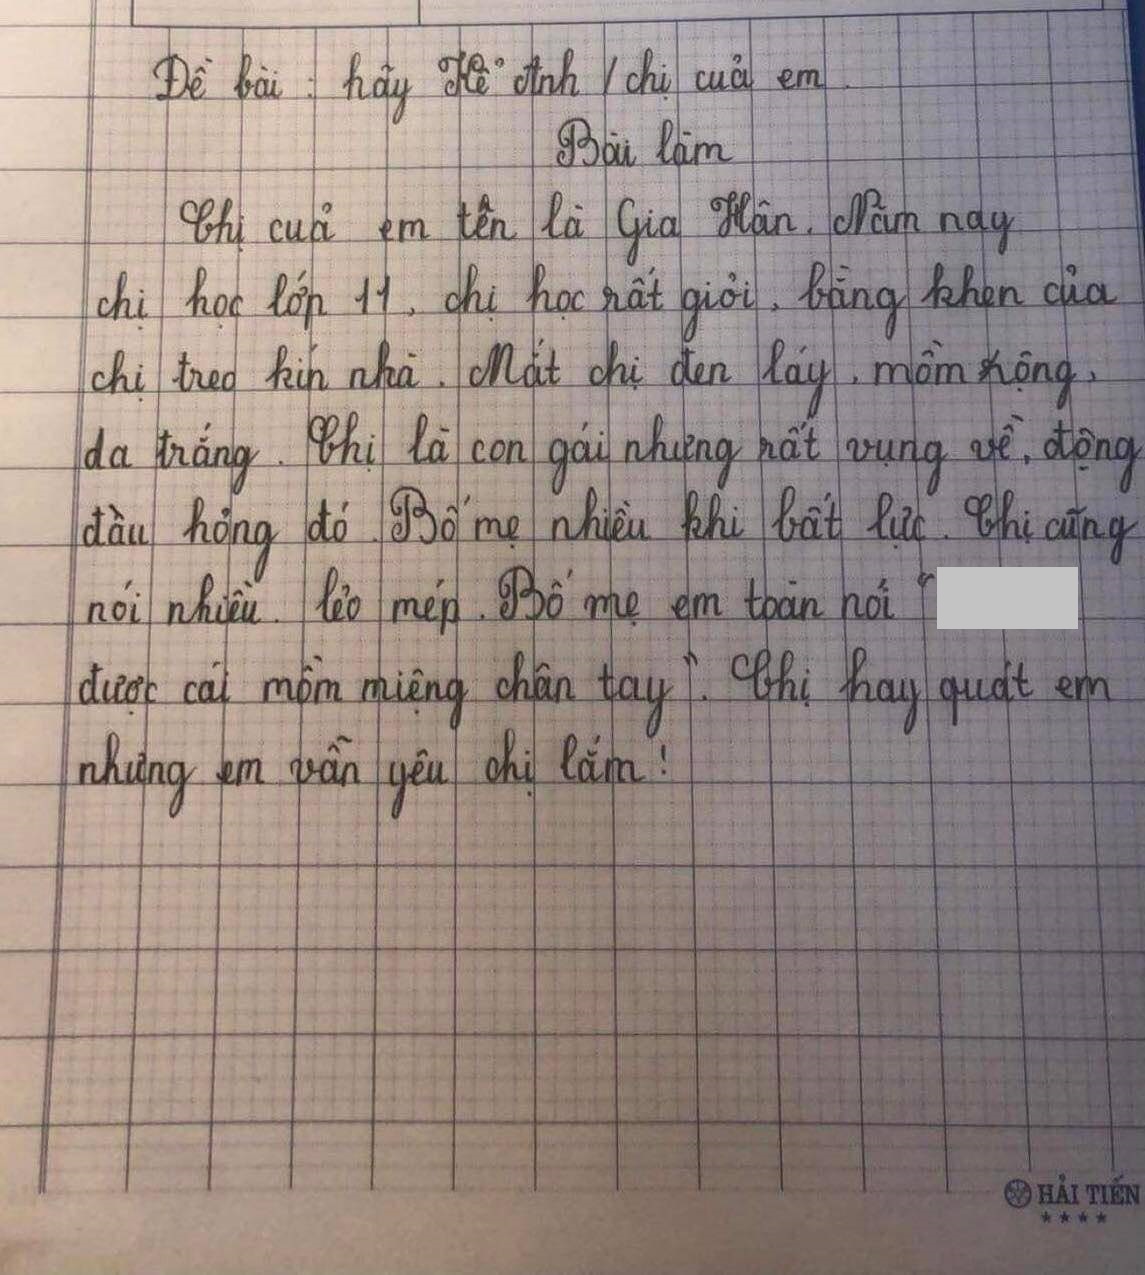 Đề bài : hãy Kể Anh / chị cuả em.
Bài làm
Chị cuả em tên là Gia Hân. Năm nay
chị học lớp 11, chị học rất giỏi, bằng khen của
chị treo kín nhà. Mắt chị đen láy, mồm rộng,
da trắng. Chị là con gái nhưng rất vụng về, động
đầu hỏng đó. Bố mẹ nhiều khi bất lực. Chị cũng
nói nhiều. lẻo mép. Bố mẹ em toàn nói "
được cái mồm miệng chân tay". Chị hay quát em
nhưng em vẫn yêu chị lắm!
HẢI TIẾN